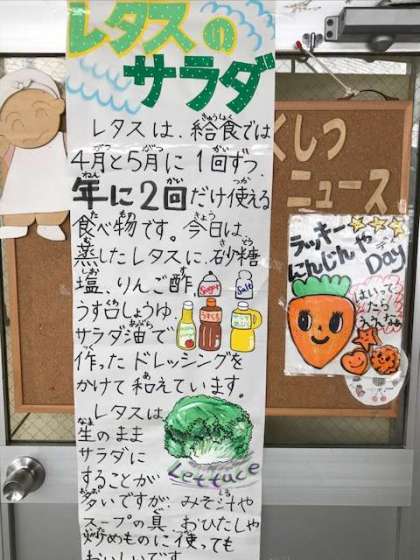 レタスの
サラダ
レタスは、給食では
4月と5月に1回ずつ、
年に2回だけ使える
食べ物です。今日は
蒸したレタスに、砂糖
塩、りんご酢、
うす口しょうゆ、
サラダ油で
作ったドレッシングを
かけて和えています。
レタスは
生のまま
サラダに
することが
多いですが、みそ汁や
スープの具、おひたしや
炒めものに使っても
おいしいです
Sugar
Salt
Lettuce
くしつ
ニュース
ラッキー
にんじんや
Day
はいって
たら